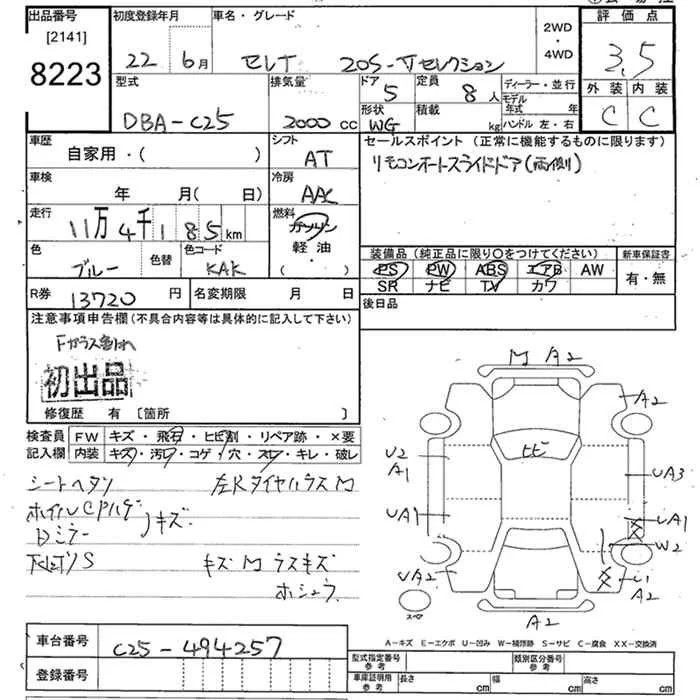 出品番号 初度登録年月 車名・グレード 2WD・4WD 評価点
[2141]
8223
22 6月 セレナ 20S-Vセレクション 3.5
型式 排気量 ドア 5 定員 8人 ディーラー・並行 外装 内装
モデル年式 年
DBA-C25 2000cc 形状 WG 積載 kg ハンドル 左・右 C C
車歴 シフト セールスポイント (正常に機能するものに限ります)
自家用・( ) AT リモコンオートスライドドア(両側)
車検 冷房
年 月(日) AAC
走行 燃料
11万4千185km ガソリン
軽油
( )
色 色替 色コード 装備品(純正品に限り〇をつけてください) 新車保証書
ブルー KAK PS PW ABS エアB AW 有・無
SR ナビ TV カワ
R券 13720円 名変期限 月 日 後日品
注意事項申告欄(不具合内容等は具体的に記入して下さい)
初出品
修復歴 有 [箇所 ]
検査員記入欄 FW キズ・飛石・ヒビ割・リペア跡・×要
内装 キズ・汚レ・コゲ・穴・スレ・キレ・破レ
シートヘタリ 左RタイヤハウスM
ホイルCPハゲ
Dミラー )キズ
下廻リS キズM ラスキズ
ホシュウ
M A2
A2
ヒビ
U2
A1
UA3
UA1
UA1
W2
UA2
U1
A2
スペア
A2
A-キズ E-エクボ U-凹み W-補修跡 S-サビ C-腐食 XX-交換済
車台番号 C25-494257
登録番号
型式指定番号 参考 類別区分番号 参考
車庫証明用 参考 長さ cm 幅 cm 高さ cm